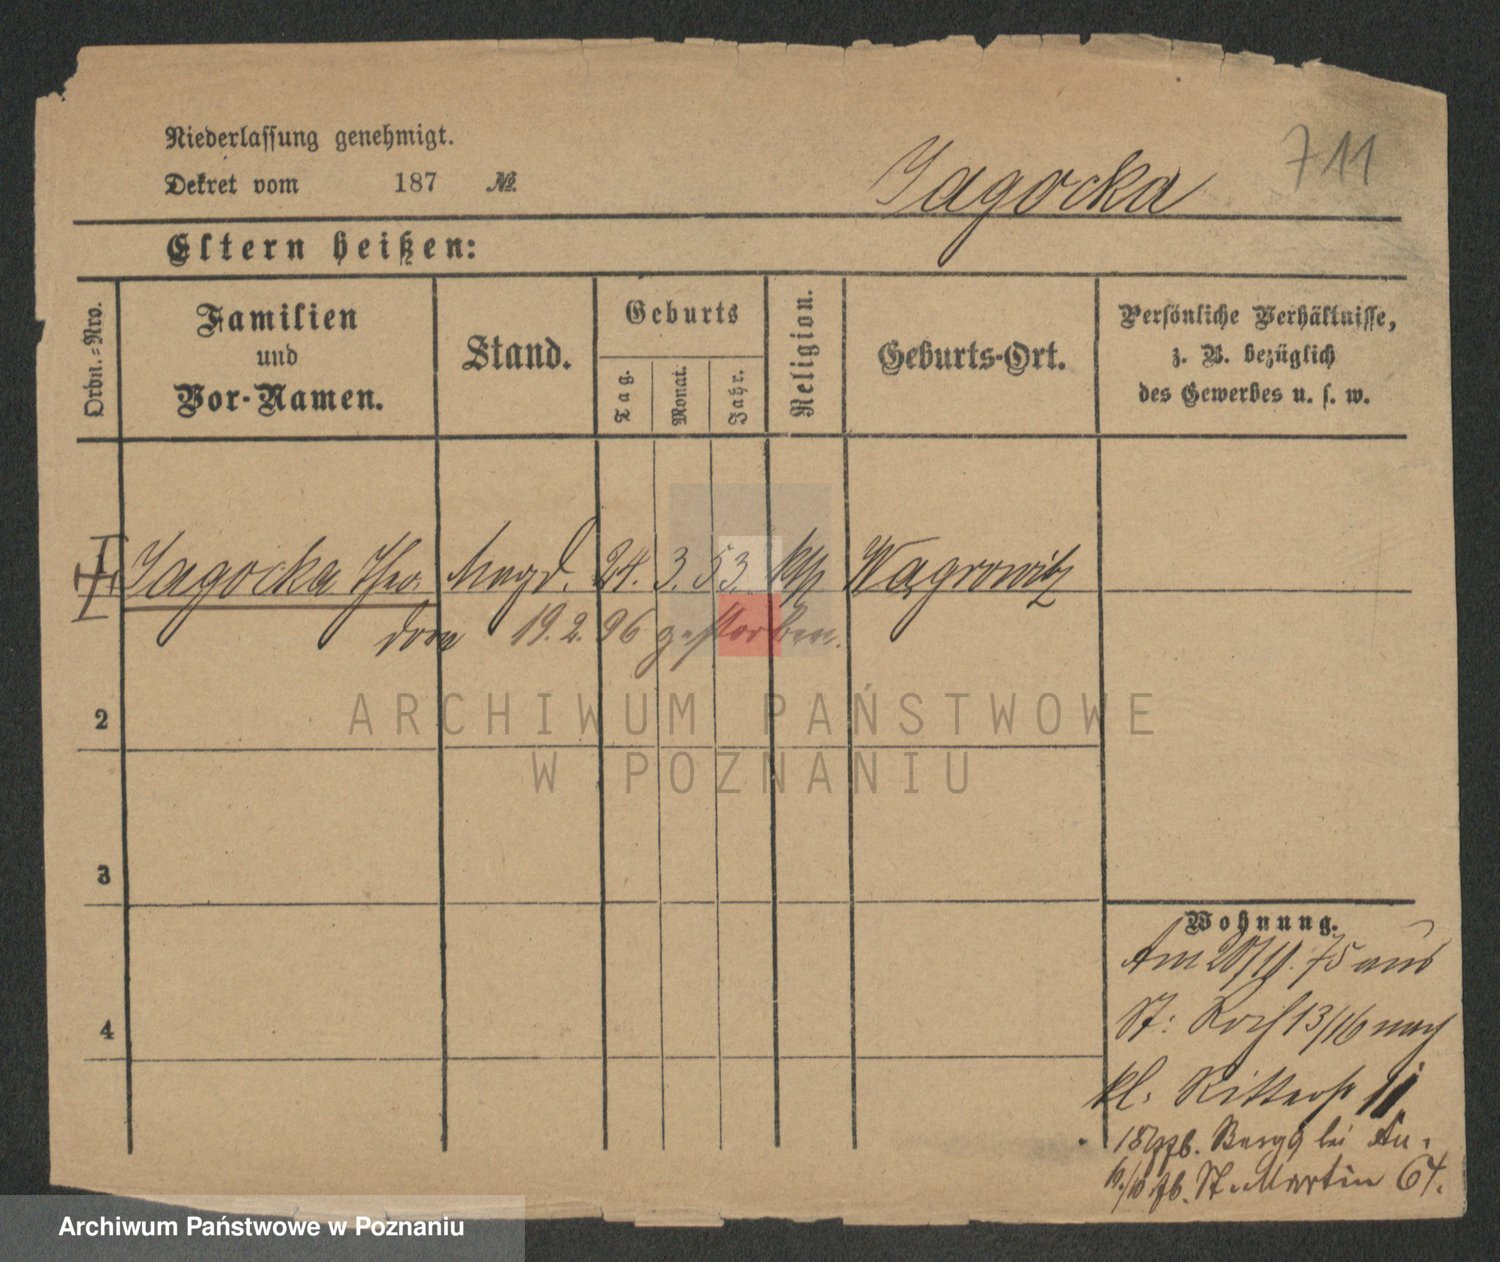 Niederlassung genehmigt.
Dekret vom 187 №
Jagocka
711
Eltern heißen:
Ordn.-Nro.
Familien
und
Vor-Namen.
Stand.
Geburts
Tag.
Monat.
Jahr.
Religion.
Geburts-Ort.
Persönliche Verhältnisse,
z. B. bezüglich
des Gewerbes u. s. w.
Jagocka Theo. Magd. 24. 3. 53 kth Wagrowitz
19. 2. 96 gestorben.
ARCHIWUM PAŃSTWOWE
W POZNANIU
2
3
4
Wohnung.
Am 20/11. 75 aus
St: Roch 13/16 nach
kl: Ritterst 11
Berg 9 bei
St. Martin 64.
Archiwum Państwowe w Poznaniu